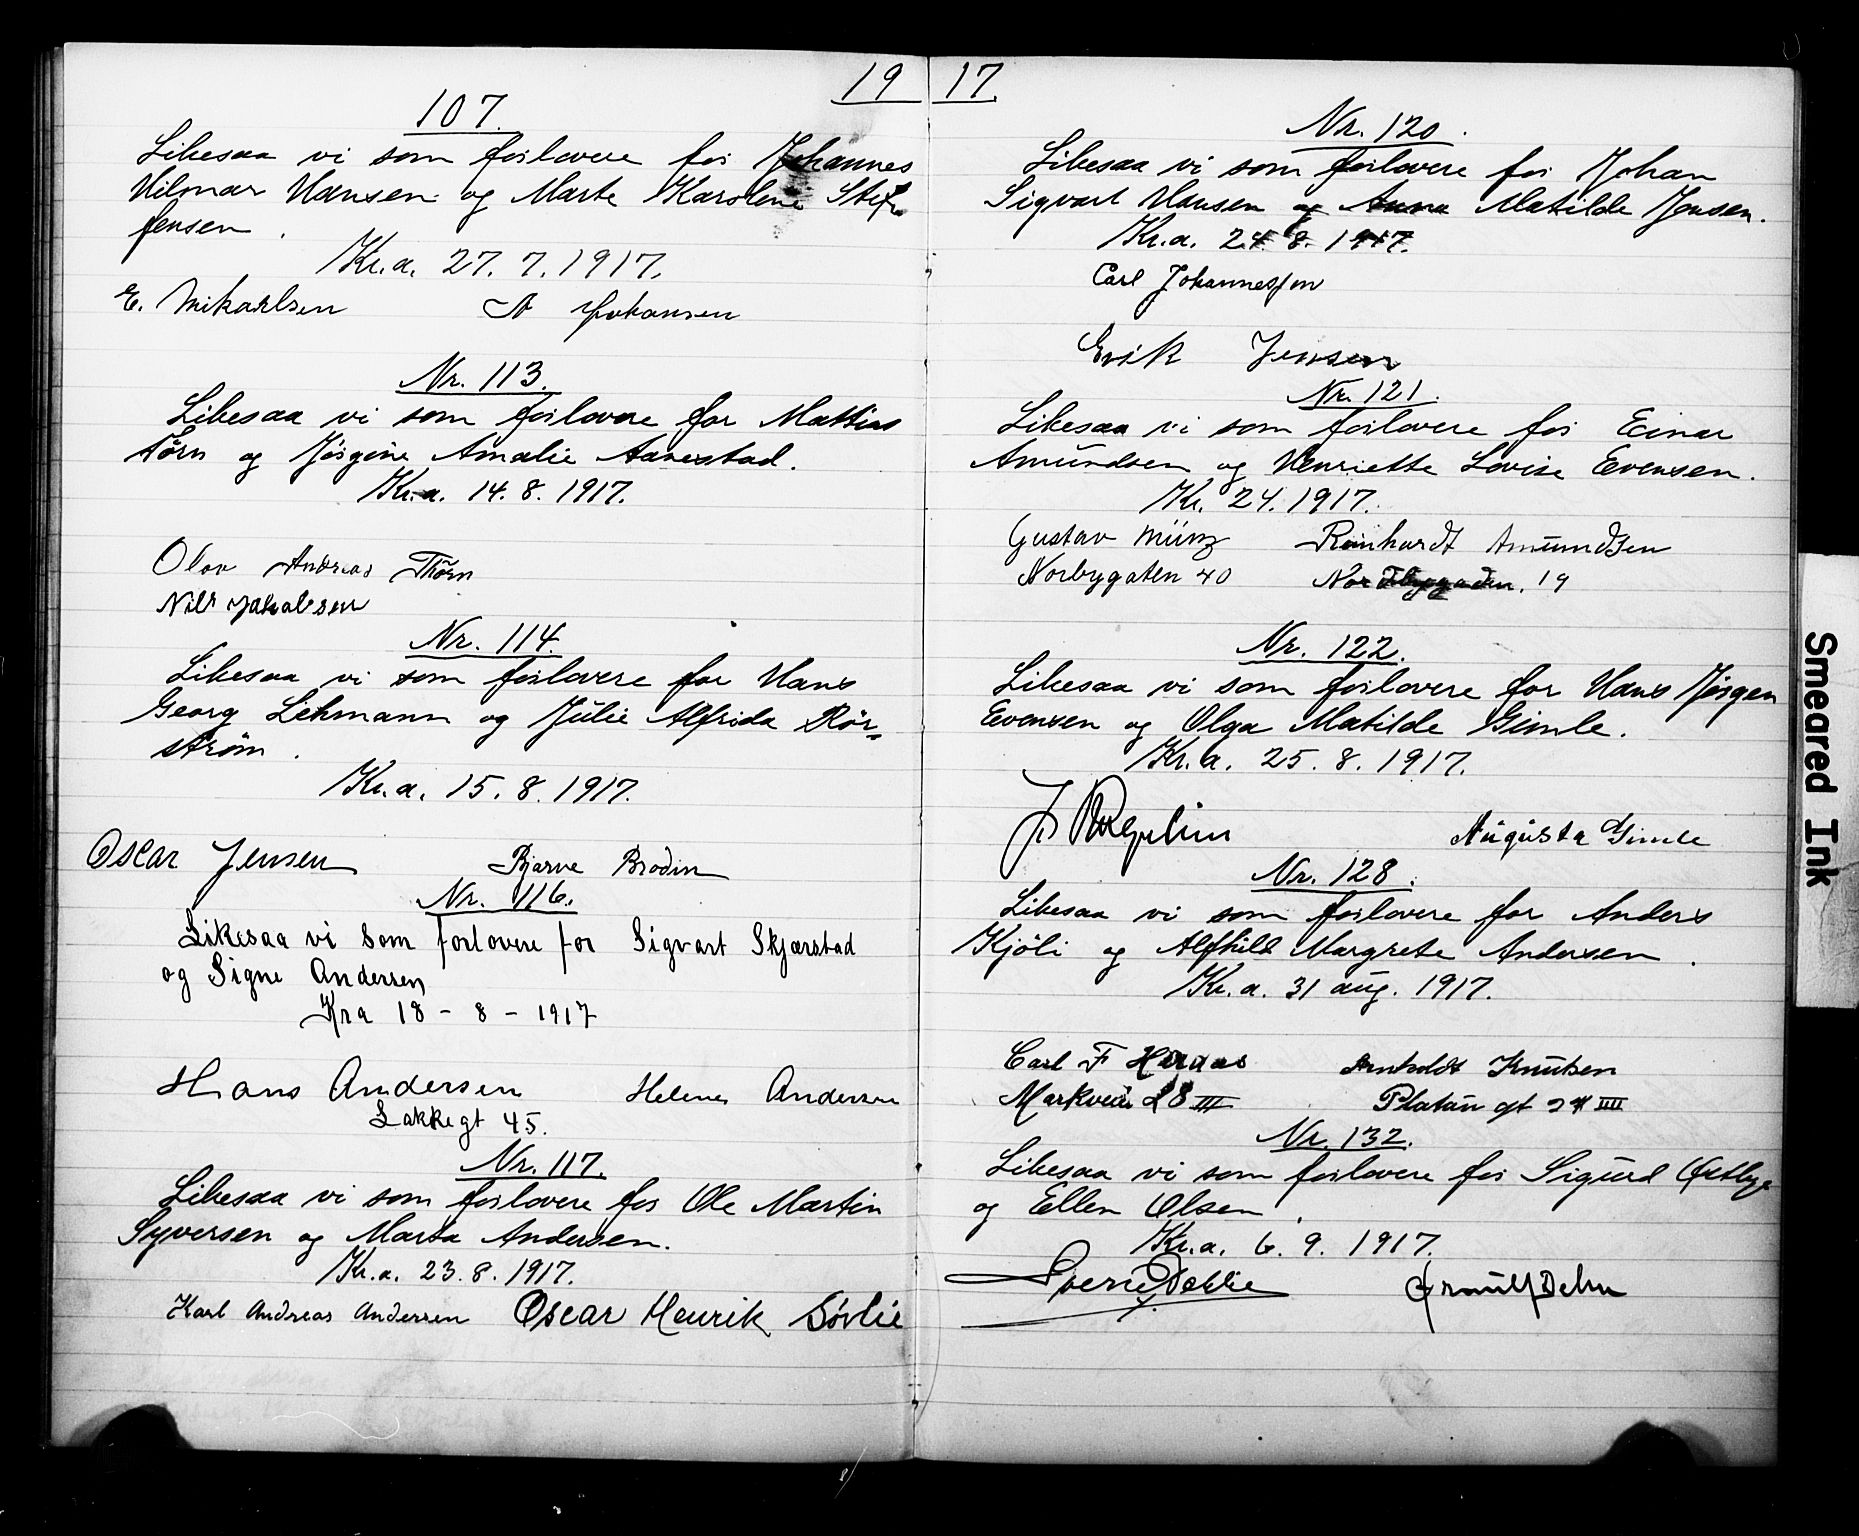 19 17.
107.
Likesaa vi som forlovere for Johannes
Hilmar Hansen og Marte Karolene Stef=
fensen.
Kr.a. 27. 7. 1917.
E. Mikaelsen A Johansen
Nr. 113.
Likesaa vi som forlovere for Mattias
törn og Jörgine Amalie Aanestad.
Kr.a. 14. 8. 1917.
Olav Andreas Thörn
Nils Jakobsen
Nr. 114.
Likesaa vi som forlovere for Hans
Georg Lehmann og Julie Alfrida Rör=
ström.
Kr.a. 15. 8. 1917.
Oscar Jensen Bjarne Brodin
Nr. 116.
Likesaa vi som forlovere for Sigvart Skjærstad
og Signe Andersen
Kra 18 - 8 - 1917
Hans Andersen Helene Andersen
Lakkegt 45.
Nr. 117.
Likesaa vi som forlovere for Ole Martin
Syversen og Marta Andersen.
Kr.a. 23. 8. 1917.
Karl Andreas Andersen Oscar Henrik Sörlie
Nr. 120.
Likesaa vi som forlovere for Johan
Sigvart Hansen og Anna Matilde Jensen.
Kr.a. 24. 8. 1917.
Carl Johannessen
Erik Jensen
Nr. 121.
Likesaa vi som forlovere for Einar
Amundsen og Henriette Lovise Evensen.
Kr. 24. 1917.
Gustav Münz Reinhardt Amundsen
Norbygaten 40 Nordbygaden. 19
Nr. 122.
Likesaa vi som forlovere for Hans Jörgen
Evensen og Olga Matilde Gimle.
Kr.a. 25. 8. 1917.
Augusta Gimle
Nr. 128.
Likesaa vi som forlovere for Anders
Kjöli og Alfhild Margrete Andersen.
Kr.a. 31 aug. 1917.
Carl F Arntoldt Knutsen
Markvein 28 III Platau gt III
Nr. 132.
Likesaa vi som forlovere for Sigurd Östbye
og Ellen Olsen.
Kr.a. 6. 9. 1917.
Sverre Dehn
Smeared Ink